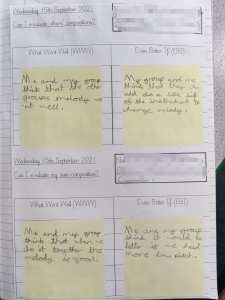 Wednesday 15th September 2021
Can I evaluate others compositions?
What Went Well (WWW)
Even Better If (EBI)
Me and my group
think that the other
groups melody w
nt well.
My group and me
think that they
add a little bit
of the instrument to
change melody.
Wednesday 15th September 2021
Can I evaluate my own composition?
What Went Well (WWW)
Even Better If (EBI)
Me and my group
think that when we
do it together the
melody is good.
Me and my group
think it would be
better if we had
more low pitch.